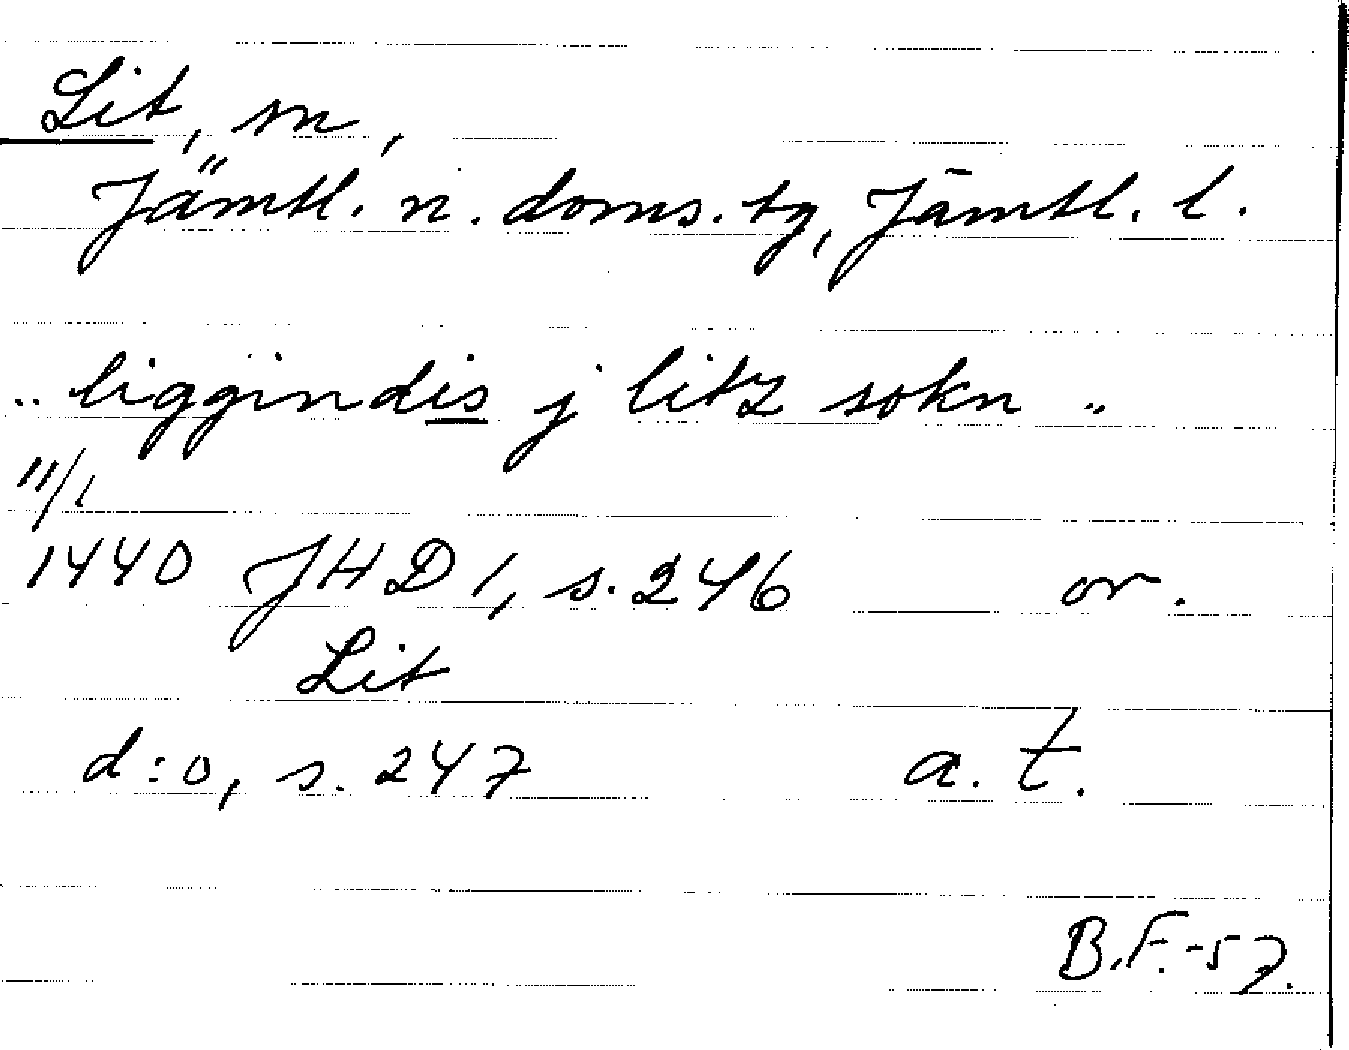 Lit, sn,
Jämtl. n. doms. tg, Jämtl. l.
.. liggindis j litz sokn ..
11/1
1440 JHD 1, s. 246 or.
Lit
d:o, s. 247 a. t.
B.F.-57.